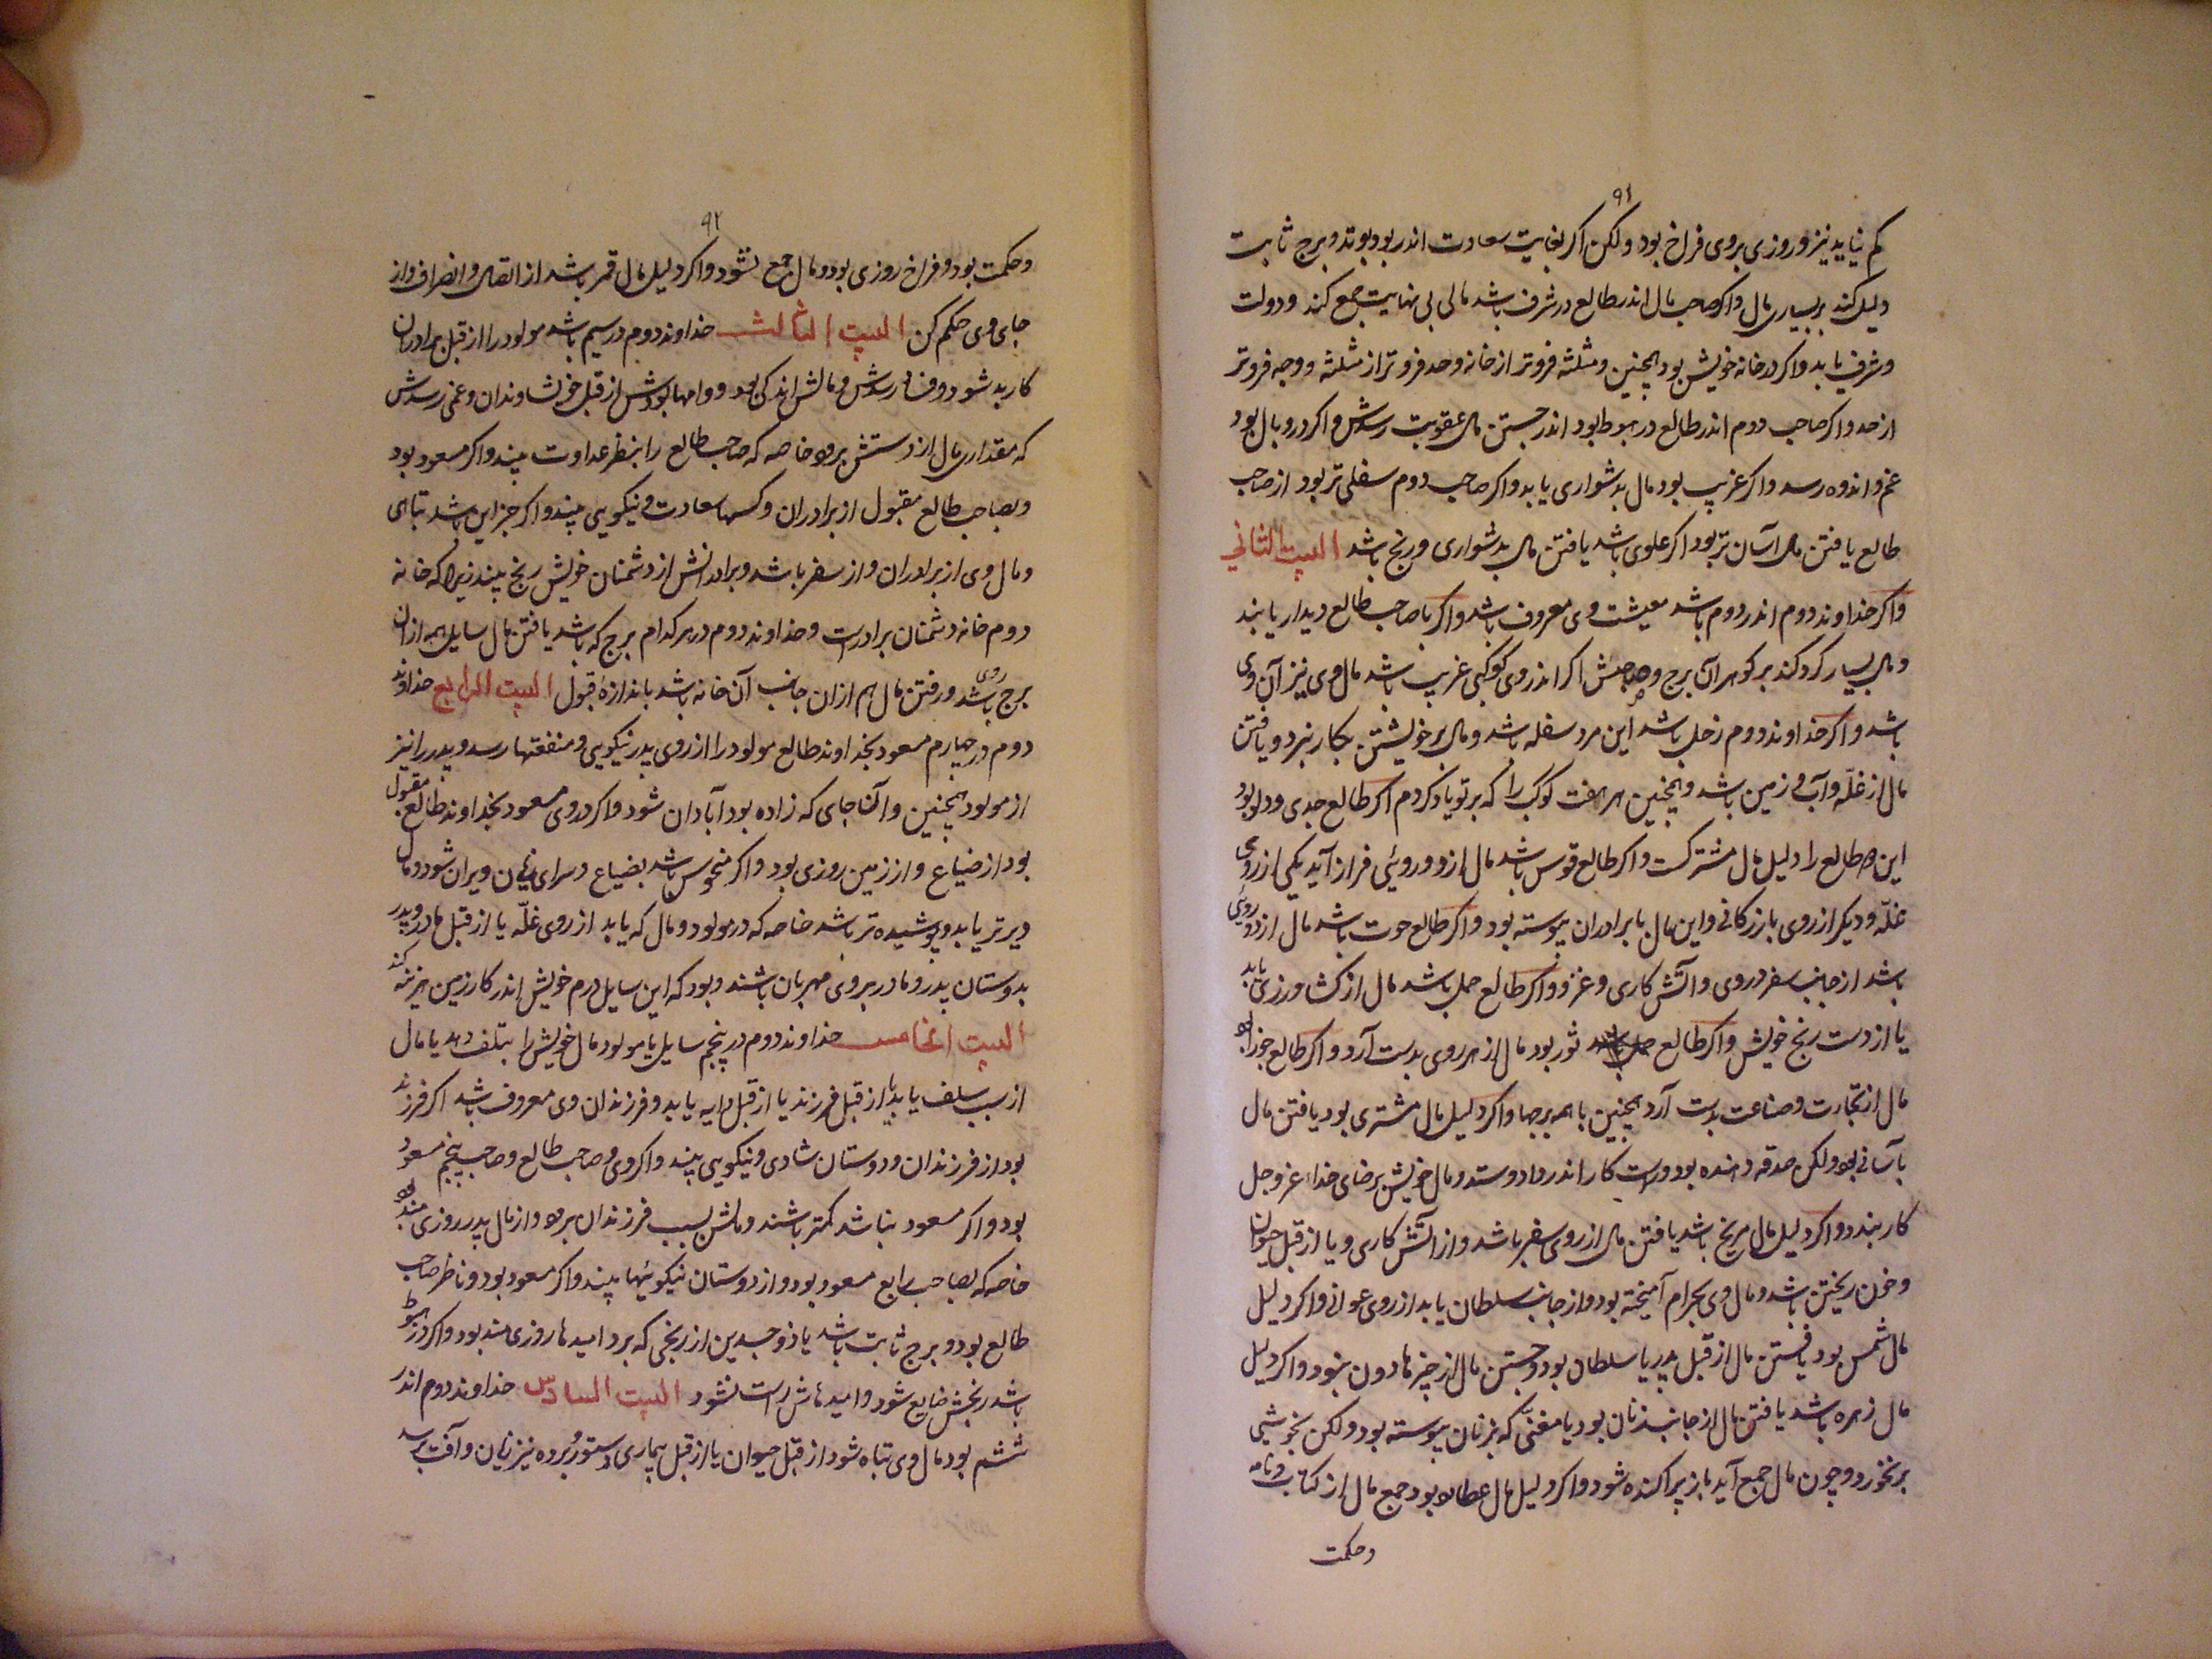 ۹۱
کم نیاید نیز و روزی بروی فراخ بود ولکن اکر بغایت سعادت اندر بود بوتد و برج ثابت
دلیل کند بر بسیاری مال و اکر صاحب مال اندر طالع در شرف باشد مالی بی نهایت جمع کند و دولت
و شرف یابد و اکر در خانه خویش بود همچنین و مثلثه فروتر از خانه و حد فروتر از مثلثه و وجه فروتر
از حد و اکر صاحب دوم اندر طالع در هبوط بود اندر جستن مال عقوبت رسدش و اکر در وبال بود
غم و اندوه رسد و اکر غریب بود مال بدشواری یابد و اکر صاحب دوم سفلی تر بود از صاحب
طالع یافتن مال آسان تر بود اکر علوی باشد یافتن مال بدشواری و رنج باشد البیت الثانی
و اکر خداوند دوم اندر دوم باشد معیشت وی معروف باشد و اکر با صاحب طالع دیدار یابند
و مال بسیار کرد کند بر کوهر آن برج و صاحبش اکر اندر وی کوکبی غریب باشد مال وی نیز آن روی
باشد و اکر خداوند دوم زحل باشد این مرد سفله باشد و مال بر خویشتن بکار نبرد و یافتن
مال از غلّه و آب و زمین باشد و همچنین هر هفت کوکب را که بر تو یاد کردم اکر طالع جدی و دلو بود
این طالع را دلیل مال مشترکست و اکر طالع قوس باشد مال از دو روئی فراز آید یکی از روی
غلّه و دیکر از روی بازرکانی و این مال با برادران پیوسته بود و اکر طالع حوت باشد مال از دو روئی
باشد از جانب سفر در وی و آتش کاری و غزو و اکر طالع حمل باشد مال از کشاورزی یابد
یا از دست رنج خویش و اکر طالع ثور بود مال از هر روی بدست آرد و اکر طالع جوزا بود
مال از تجارت و صناعت بدست آرد همچنین با همه برجها و اکر دلیل مال مشتری بود یافتن مال
بآسانی بود ولکن صدقه دهنده بود و راست کار اندر داد و ستد و مال خویش بر رضای خداء عز و جل
کار بندد و اکر دلیل مال مریخ باشد یافتن مال از روی سفر باشد و از آتش کاری و یا از قبل حیوان
و خون ریختن باشد و مال وی بحرام آمیخته بود و از جانب سلطان یابد از روی عوانی و اکر دلیل
مال شمس بود یافتن مال از قبل پدر یا سلطان بود و جستن مال از چیزها دون نبود و اکر دلیل
مال زهره باشد یافتن مال از جانب زنان بود یا مغنّی که بزنان پیوسته بود ولکن بخوشی
برنخورد و چون مال جمع آید باز پراکنده شود و اکر دلیل مال عطارد بود جمع مال از کتاب و نامه
و حکمت
۹۲
و حکمت بود و فراخ روزی بود و مال جمع نشود و اکر دلیل مال قمر باشد از اتصال و انصراف و از
جای وی حکم کن البیت الثالث خداوند دوم در سیم باشد مولود را از قبل برادران
کار بد شود و وفا رسدش و مالش اندکی بود و وامها بودش از قبل خویشاوندان و غمی رسدش
که مقداری مال از دستش برود خاصه که صاحب طالع را بنظر عداوت بیند و اکر مسعود بود
و بصاحب طالع مقبول از برادران و کسها سعادت و نیکویی بیند و اکر جز این باشد تباهی
و مال وی از برادران و از سفر باشد و برادرانش از دشمنان خویش رنج بینند زیرا که خانه
دوم خانه دشمنان برادرست و خداوند دوم در هر کدام برج که باشد یافتن مال سایل هم از آن
برج روی باشد و رفتن مال هم از آن جانب آن خانه باشد باندازۀ قبول البیت الرابع خداوند
دوم در چهارم مسعود بخداوند طالع مولود را از روی پدر نیکویی و منفعتها رسد و پدر را نیز
از مولود همچنین و آنجای که زاده بود آبادان شود و اکر در وی مسعود بخداوند طالع مقبول
بود از ضیاع و از زمین روزی بود و اکر منحوس باشد بضیاع و سرای زیان و ویران شود و مال
دیرتر یابد و پوشیده تر باشد خاصه که در مولود و مال که یابد از روی غلّه یا از قبل مادر و پدر
بدوستان پدر و مادر بر وی مهربان باشند و بود که این سایل درم خویش اندر کار زمین هزینه کند
البیت الخامس خداوند دوم در پنجم سایل یا مولود مال خویش را بتلف دهد یا مال
از سبب سلف یابد یا از قبل فرزند یا از قبل دایه یابد و فرزندان وی معروف باشد اکر فرزند
بود از فرزندان و دوستان شادی و نیکویی بیند و اکر وی و صاحب طالع و صاحب پنجم مسعود
بود و اکر مسعود نباشد کمتر باشند و مالش بسبب فرزندان برود و از مال پدر روزی مند بود
خاصه که بصاحب رابع مسعود بود و از دوستان نیکوئیها بیند و اکر مسعود بود و ناظر صاحب
طالع بود و برج ثابت باشد یا ذوجسدین از رنجی که برد امیدها روزی مند بود و اکر در هبوط
باشد رنجش ضایع شود و امیدهاش راست نشود البیت السادس خداوند دوم اندر
ششم بود مال وی تباه شود از قبل حیوان یا از قبل بیماری و ستور و برده نیز زیان و آفت رسد